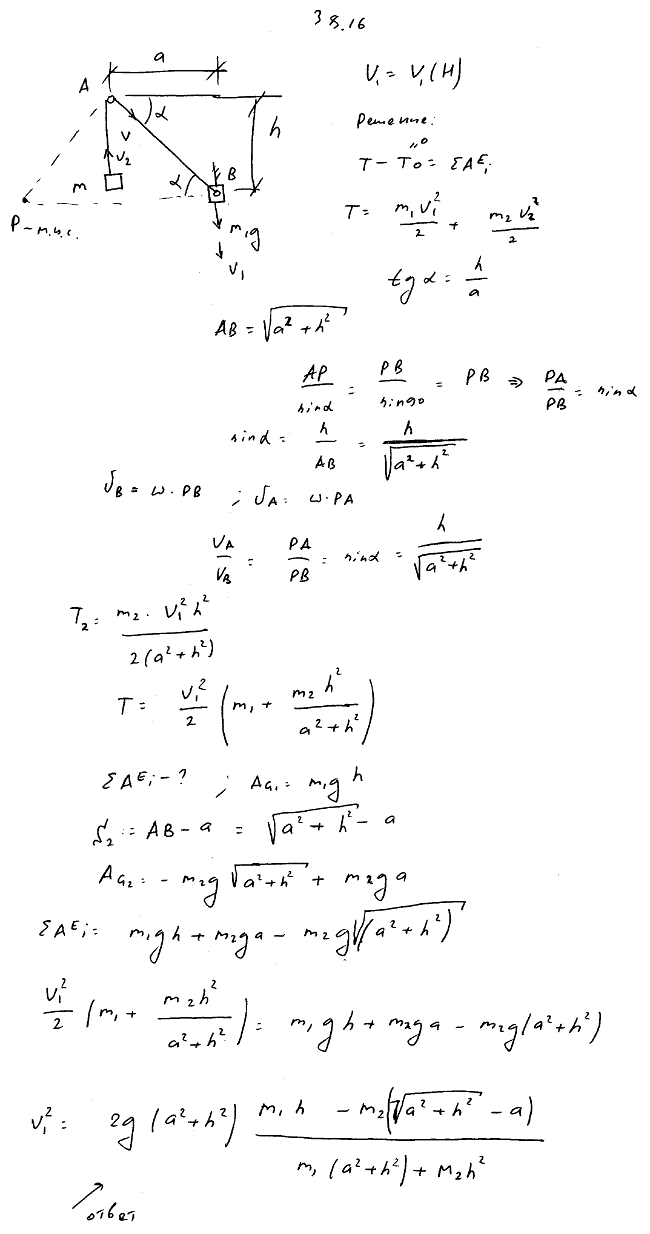 38.16
a
V₁ = V₁(H)
A
α
h
Решение:
V
V₂
T - T₀ = ΣAᴱᵢ
"0
m
α
B
P - м.ц.с.
m₁g
V₁
T = m₁V₁²/2 + m₂V₂²/2
tg α = h/a
AB = √(a² + h²)
AP/sinα = PB/sin90 = PB ⇒ PA/PB = sinα
sinα = h/AB = h/√(a² + h²)
υB = ω · PB ; υA = ω · PA
υA/VB = PA/PB = sinα = h/√(a² + h²)
T₂ = m₂ · V₁²h²/2(a² + h²)
T = V₁²/2 (m₁ + m₂h²/(a² + h²))
ΣAᴱᵢ - ? ; AG₁ = m₁gh
S₂ = AB - a = √(a² + h²) - a
AG₂ = - m₂g√(a² + h²) + m₂ga
ΣAᴱᵢ = m₁gh + m₂ga - m₂g√(a² + h²)
V₁²/2 (m₁ + m₂h²/(a² + h²)) = m₁gh + m₂ga - m₂g(a² + h²)
V₁² = 2g(a² + h²) (m₁h - m₂(√(a² + h²) - a))/(m₁(a² + h²) + M₂h²)
ответ